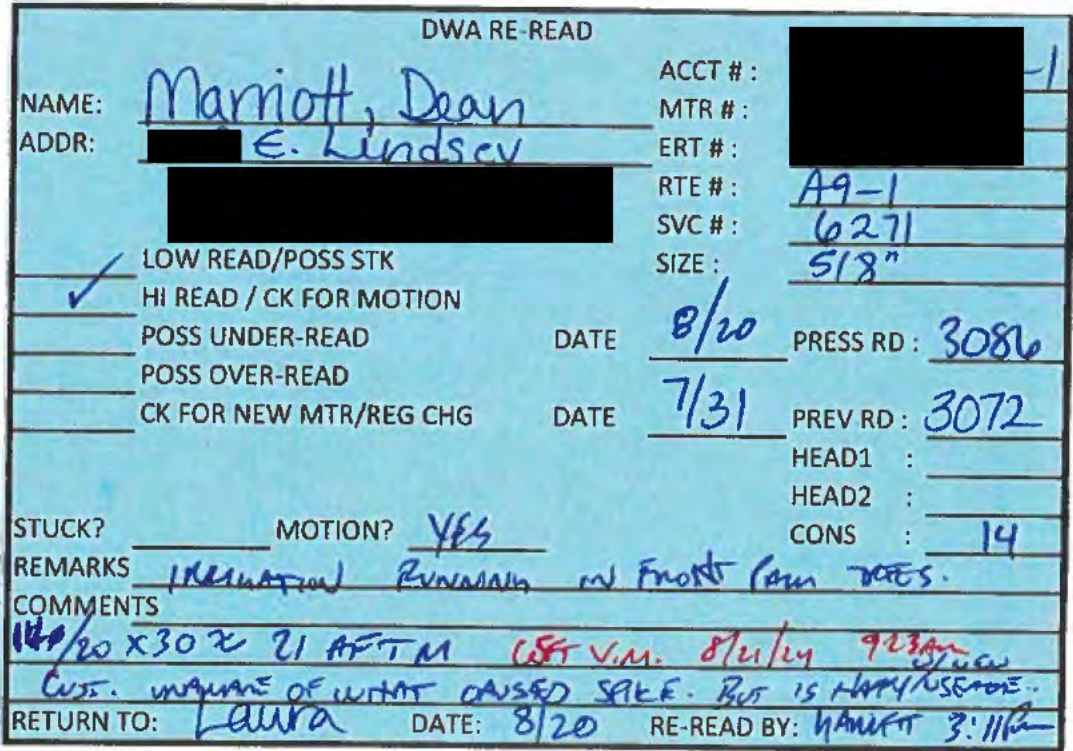 DWA RE-READ
NAME: Marriott, Dean
ADDR: E. Lindsey
ACCT # : -1
MTR # :
ERT # :
RTE # : A9-1
SVC # : 6271
SIZE : 5/8"
LOW READ/POSS STK
✓ HI READ / CK FOR MOTION
POSS UNDER-READ DATE 8/20 PRESS RD : 3086
POSS OVER-READ
CK FOR NEW MTR/REG CHG DATE 7/31 PREV RD : 3072
HEAD1 :
HEAD2 :
STUCK? MOTION? YES CONS : 14
REMARKS IRRIGATION RUNNING IN FRONT PALM TREES.
COMMENTS
/20 x 30 ≈ 21 AFTM LEFT V.M. 8/21/24 923Am
CUST. UNAWARE OF WHAT CAUSED SPIKE. BUT IS HAPPY W/NEW USEAGE.
RETURN TO: Laura DATE: 8/20 RE-READ BY: 3:11Pm